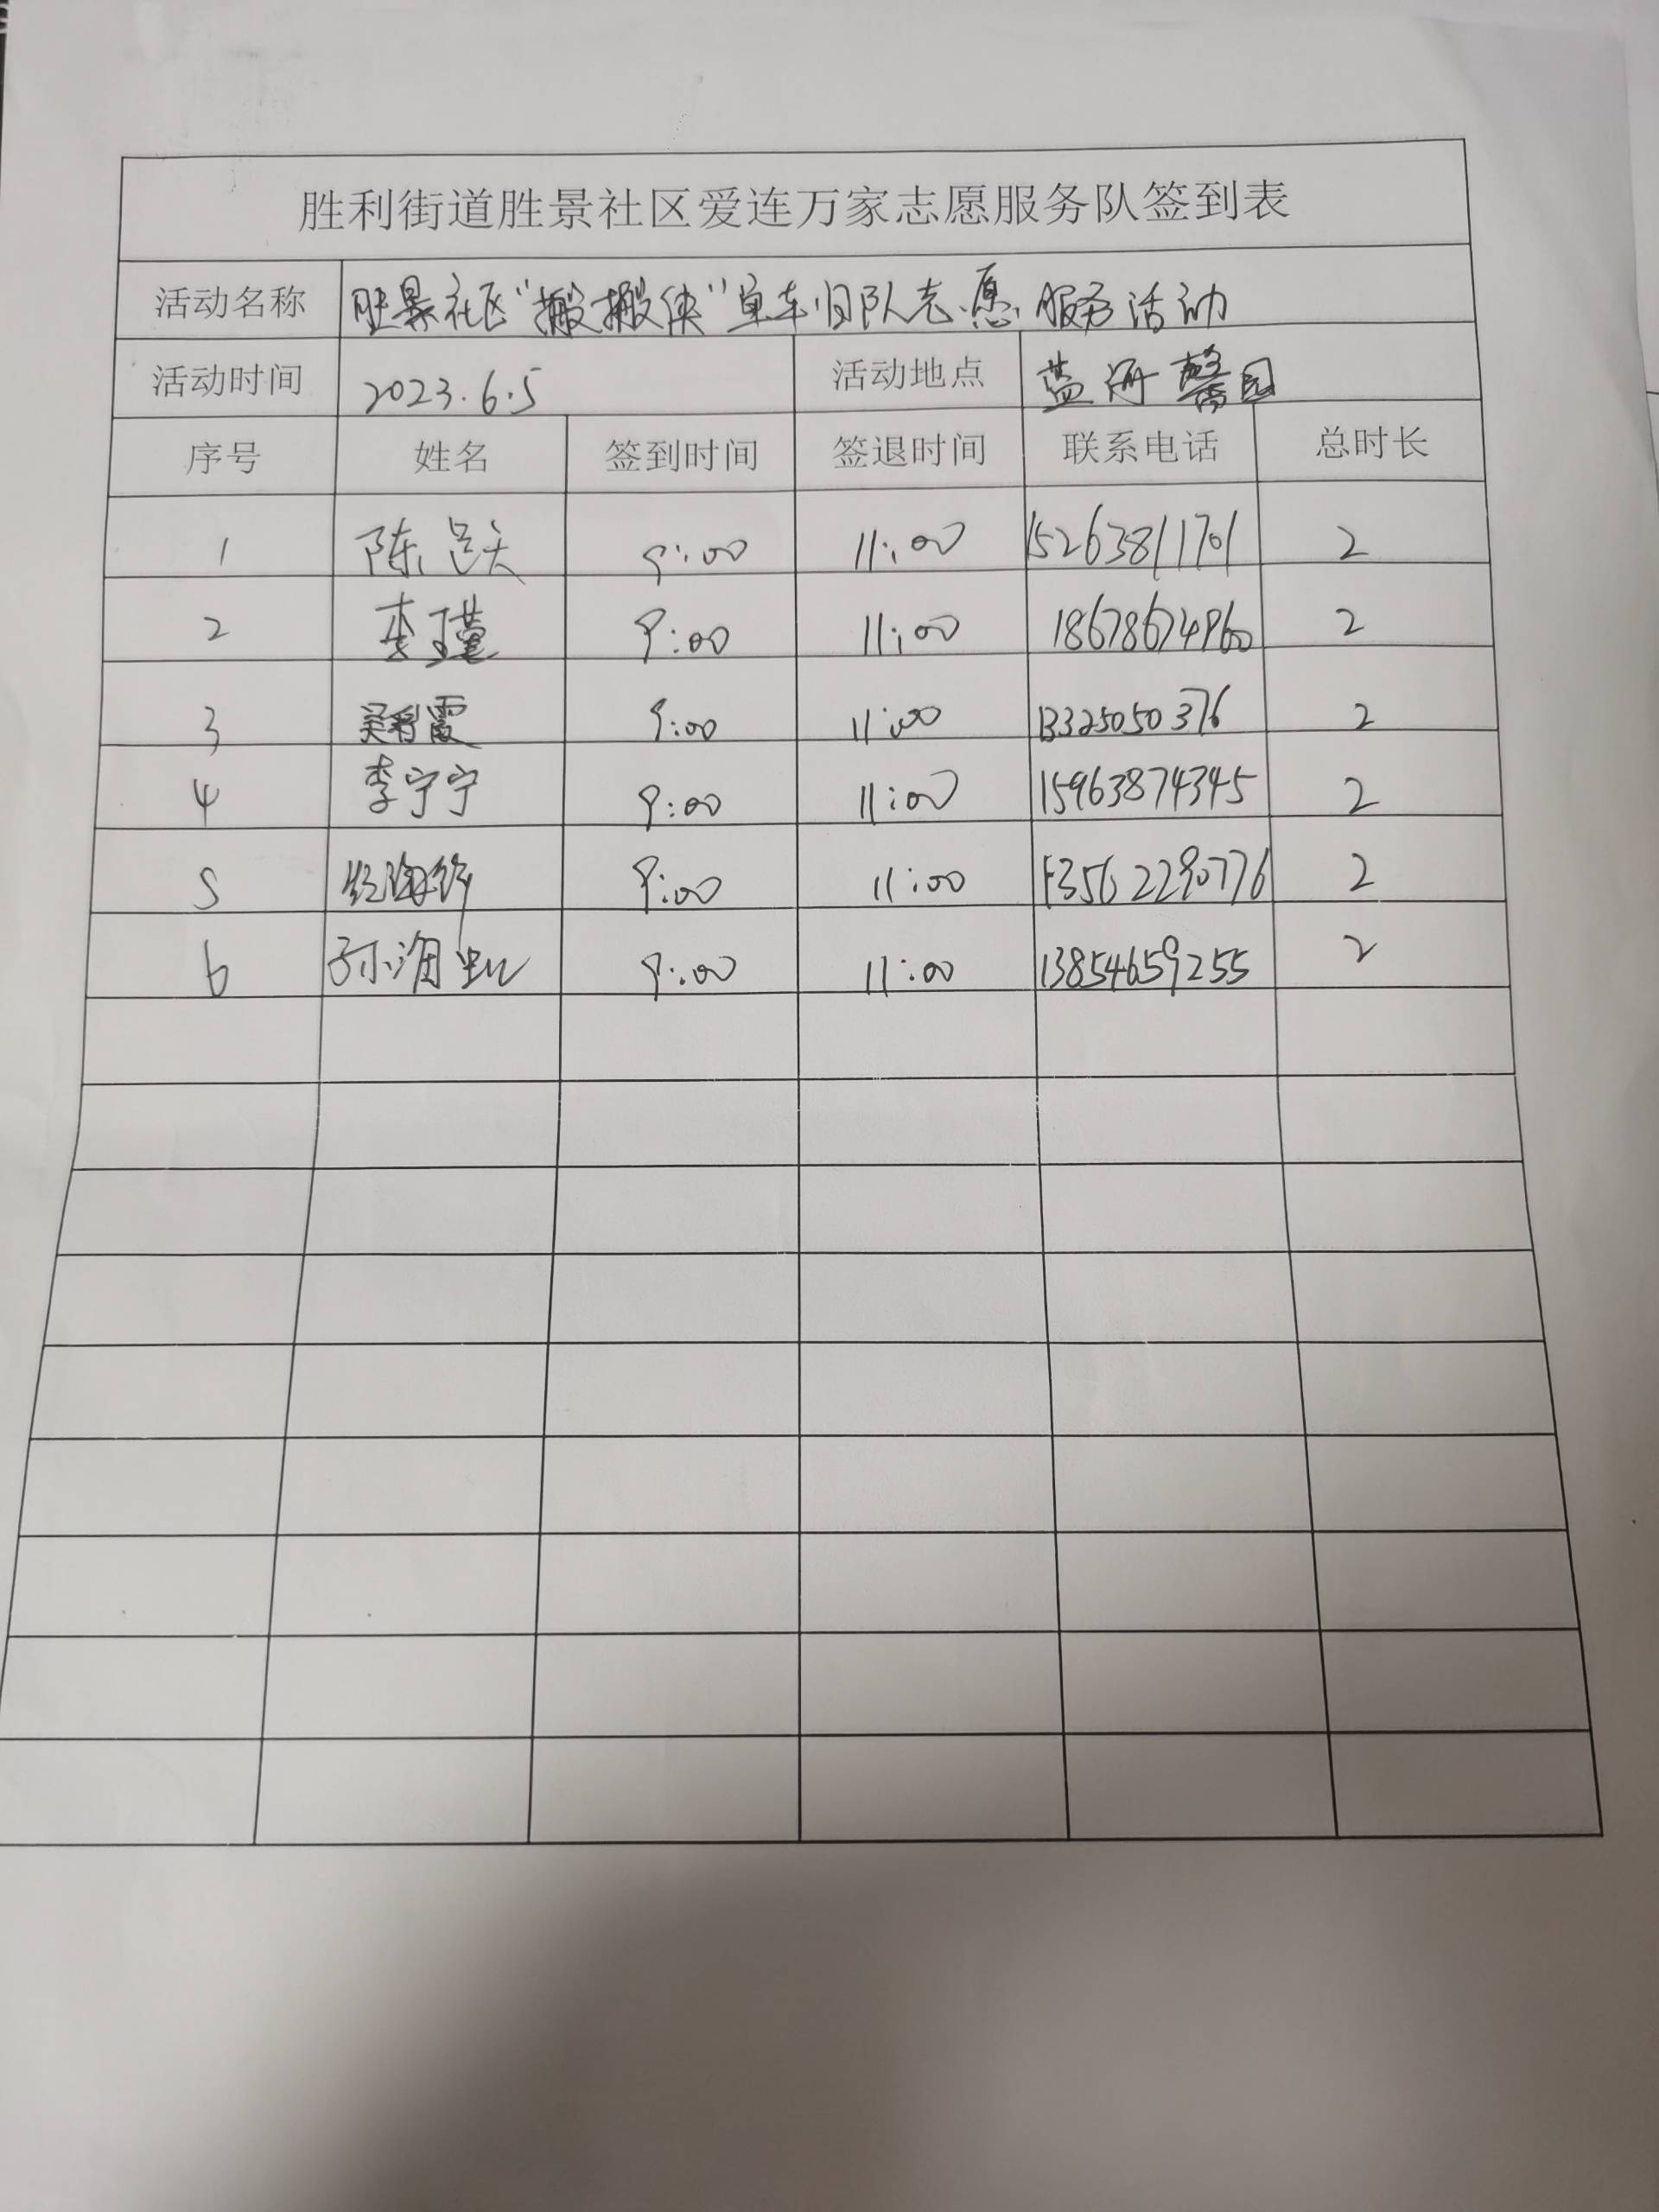 胜利街道胜景社区爱连万家志愿服务队签到表
活动名称 胜景社区“搬搬侠”单车归队志愿服务活动
活动时间 2023.6.5 活动地点 蓝海馨园
序号 姓名 签到时间 签退时间 联系电话 总时长
1 陈 9:00 11:00 15263811701 2
2 李瑾 9:00 11:00 18678674960 2
3 吴彩霞 9:00 11:00 13325050376 2
4 李宁宁 9:00 11:00 15963874345 2
5 9:00 11:00 13562290776 2
6 孙海虹 9:00 11:00 13854659255 2